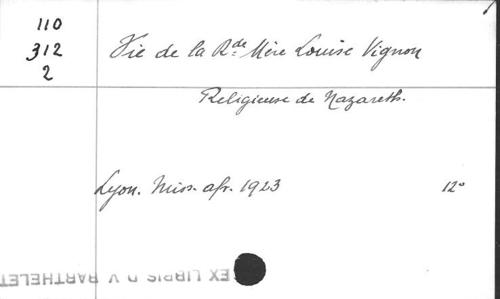 110
312
2
Vie de la Rde Mère Louise Vignon
Religieuse de Nazareth.
Lyon. Miss. afr. 1923 12°
EX LIBRIS D V BARTHELET